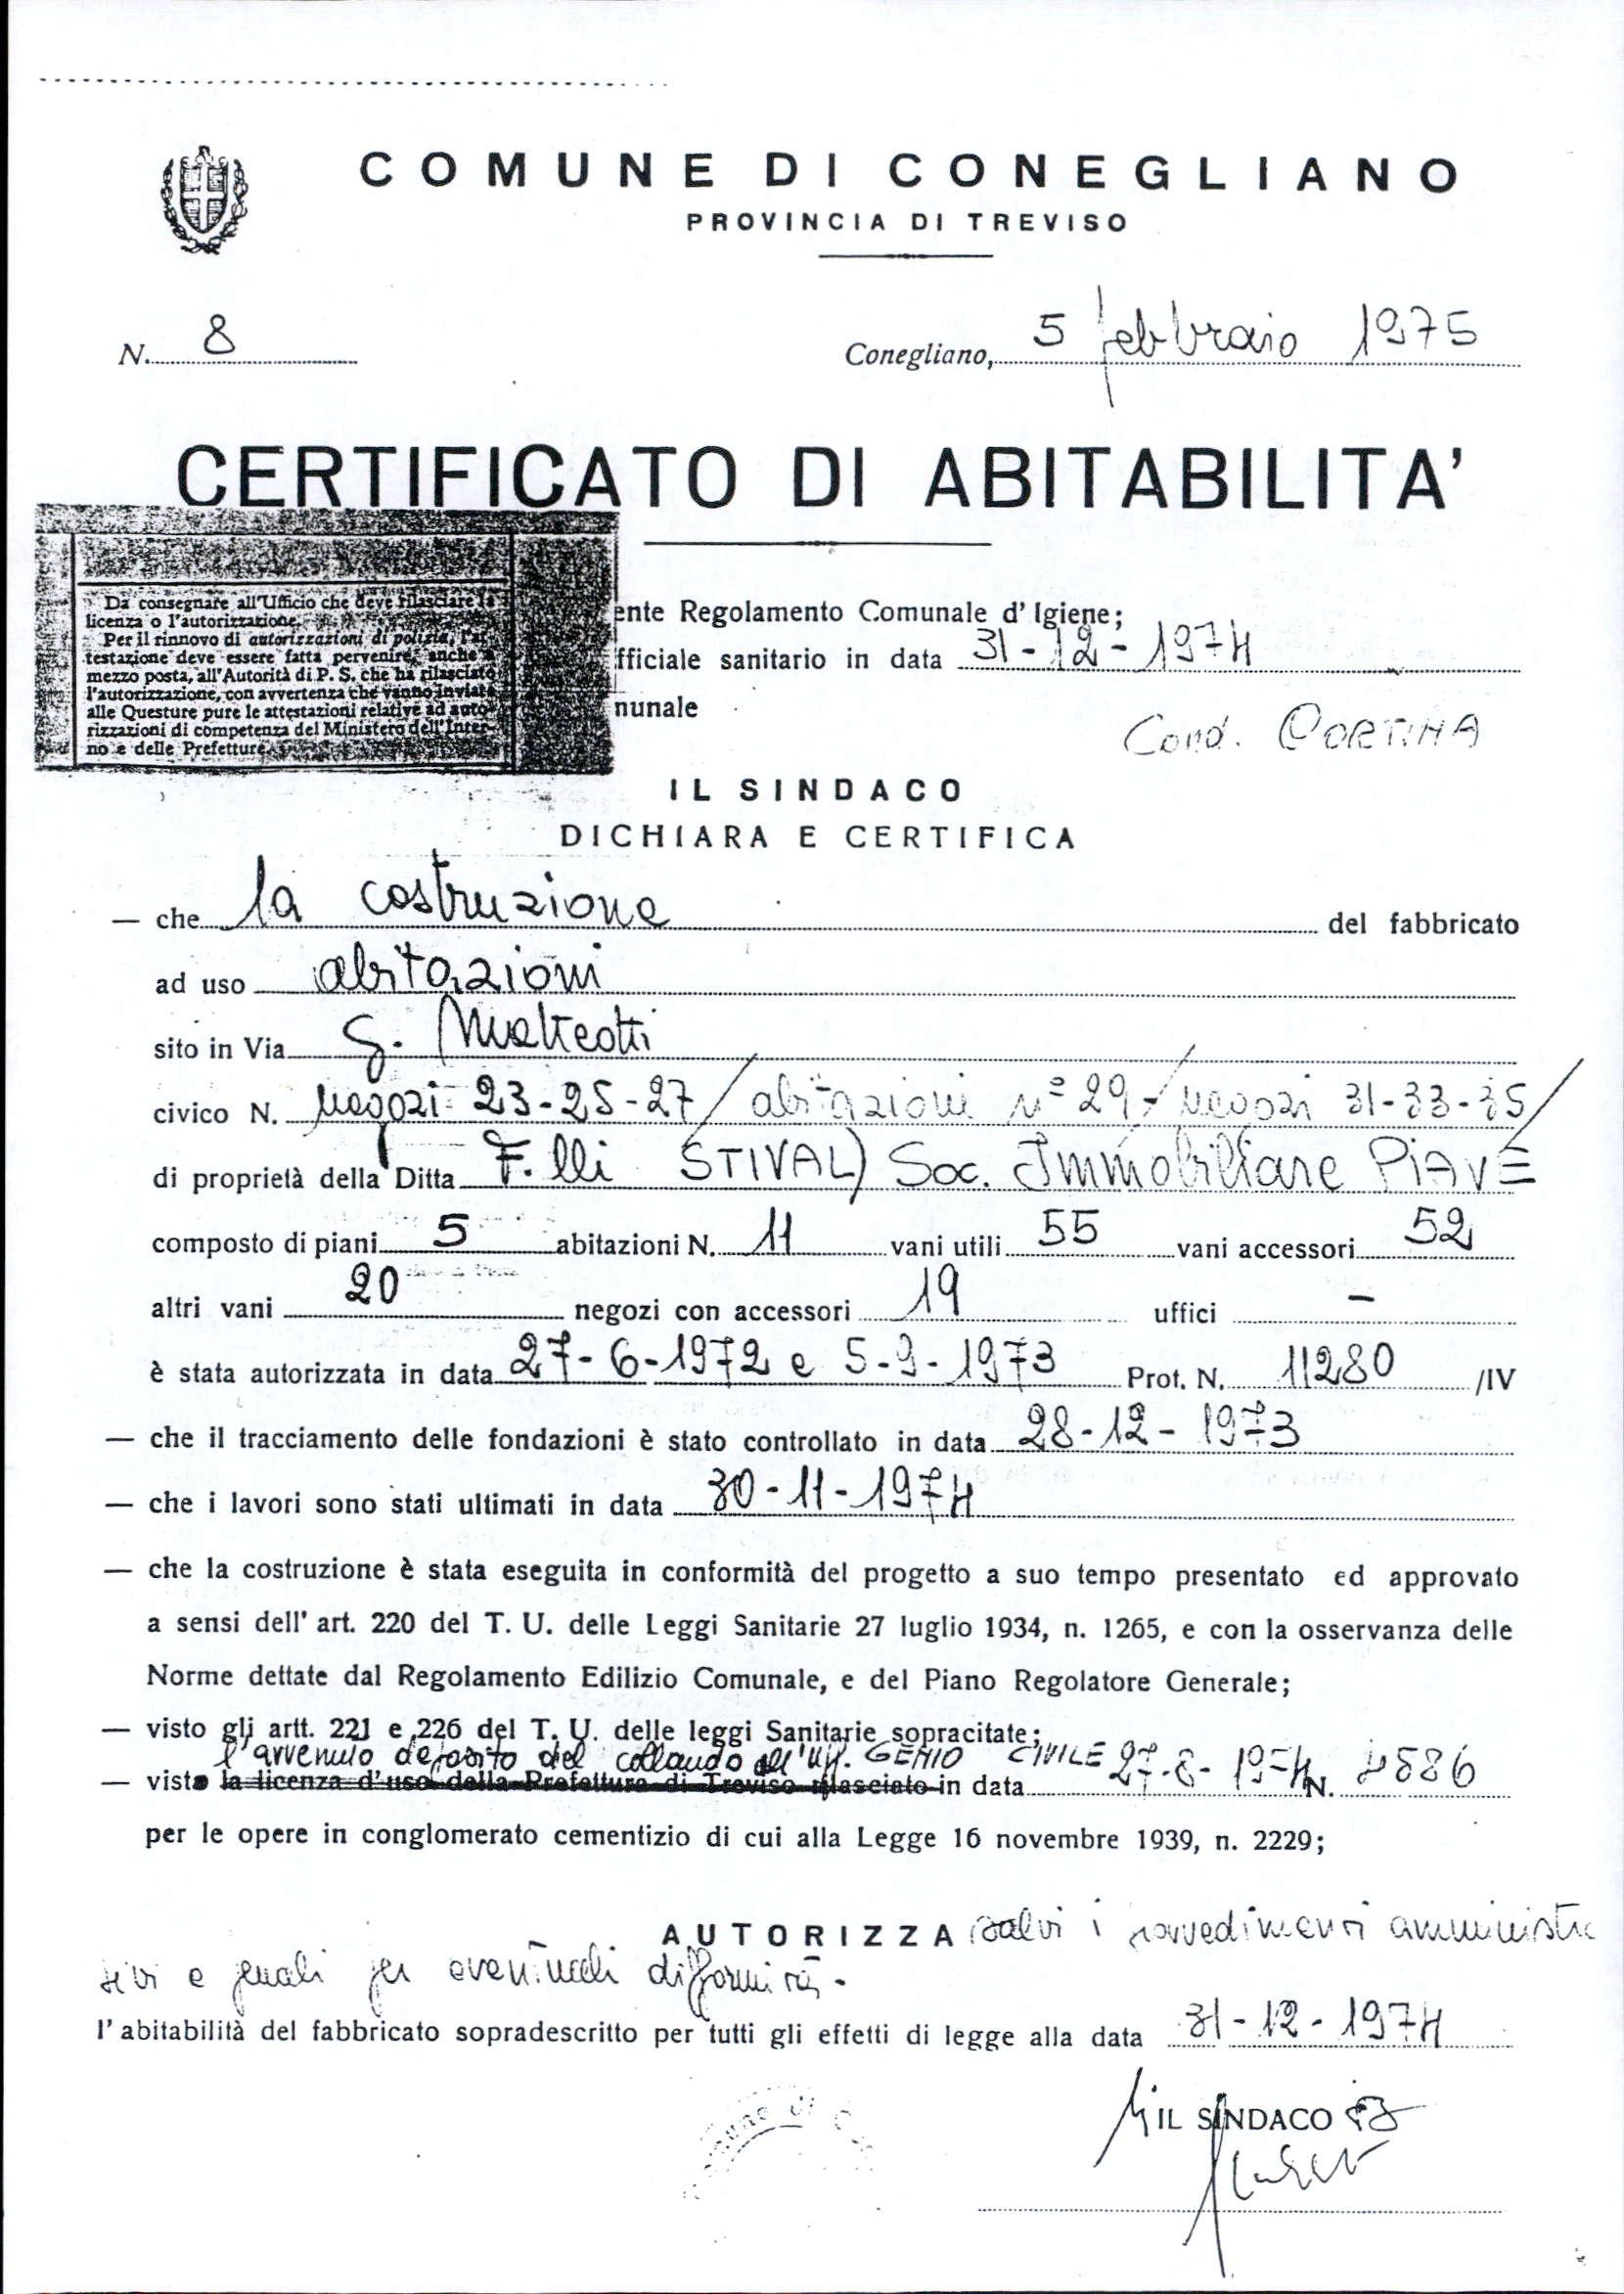 COMUNE DI CONEGLIANO
PROVINCIA DI TREVISO
N. 8
Conegliano, 5 febbraio 1975
CERTIFICATO DI ABITABILITA'
Da consegnare all'Ufficio che deve rilasciare la
licenza o l'autorizzazione.
Per il rinnovo di autorizzazioni di polizia, l'at-
testazione deve essere fatta pervenire, anche a
mezzo posta, all'Autorità di P. S. che ha rilasciato
l'autorizzazione, con avvertenza che vanno inviate
alle Questure pure le attestazioni relative ad auto-
rizzazioni di competenza del Ministero dell'Inter-
no e delle Prefetture.
ente Regolamento Comunale d' Igiene;
fficiale sanitario in data 31-12-1974
nunale
Cond. CORTINA
IL SINDACO
DICHIARA E CERTIFICA
— che la costruzione del fabbricato
ad uso abitazioni
sito in Via G. Matteotti
civico N. negozi 23-25-27/abitazioni n° 29/negozi 31-33-35/
di proprietà della Ditta F.lli STIVAL) Soc. Immobiliare PIAVE
composto di piani 5 abitazioni N. 11 vani utili 55 vani accessori 52
altri vani 20 negozi con accessori 19 uffici –
è stata autorizzata in data 27-6-1972 e 5-9-1973 Prot. N. 11280 /IV
— che il tracciamento delle fondazioni è stato controllato in data 28-12-1973
— che i lavori sono stati ultimati in data 30-11-1974
— che la costruzione è stata eseguita in conformità del progetto a suo tempo presentato ed approvato
a sensi dell' art. 220 del T. U. delle Leggi Sanitarie 27 luglio 1934, n. 1265, e con la osservanza delle
Norme dettate dal Regolamento Edilizio Comunale, e del Piano Regolatore Generale;
— visto gli artt. 221 e 226 del T. U. delle leggi Sanitarie sopracitate;
l'avvenuto deposito del collaudo all'Uff. GENIO CIVILE
— visto la licenza d'uso della Prefettura di Treviso rilasciato in data 27-8-1974 N.
per le opere in conglomerato cementizio di cui alla Legge 16 novembre 1939, n. 2229;
AUTORIZZA (salvi i provvedimenti amministra
tivi e penali per eventuali difformità -
l'abitabilità del fabbricato sopradescritto per tutti gli effetti di legge alla data 31-12-1974
IL SINDACO